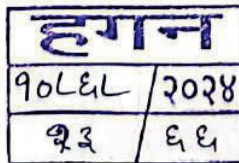 हगन
१०८६८ / २०२४
२३ / ६६